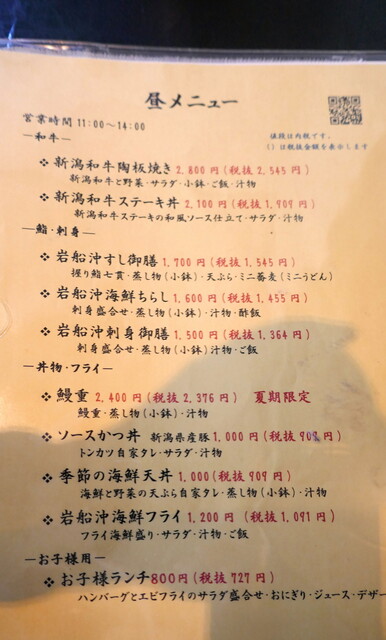 昼メニュー
営業時間 11:00～14:00
値段は内税です。
()は税抜金額を表示します
―和牛―
❖ 新潟和牛陶板焼き 2,800円(税抜2,545円)
新潟和牛と野菜・サラダ・小鉢・ご飯・汁物
❖ 新潟和牛ステーキ丼 2,100円(税抜1,909円)
新潟和牛ステーキの和風ソース仕立て・サラダ・汁物
―鮨・刺身―
❖ 岩船沖すし御膳 1,700円(税抜1,545円)
握り鮨七貫・蒸し物(小鉢)・天ぷら・ミニ蕎麦(ミニうどん)
❖ 岩船沖海鮮ちらし 1,600円(税抜1,455円)
刺身盛合せ・蒸し物(小鉢)・汁物・酢飯
❖ 岩船沖刺身御膳 1,500円(税抜1,364円)
刺身盛合せ・蒸し物(小鉢)汁物・ご飯
―丼物・フライ―
❖ 鰻重 2,400円(税抜2,376円) 夏期限定
鰻重・蒸し物(小鉢)・汁物
❖ ソースかつ丼 新潟県産豚1,000円(税抜909円)
トンカツ自家タレ・サラダ・汁物
❖ 季節の海鮮天丼 1,000(税抜909円)
海鮮と野菜の天ぷら自家タレ・蒸し物(小鉢)・汁物
❖ 岩船沖海鮮フライ 1,200円(税抜1,091円)
フライ海鮮盛り・サラダ・汁物・ご飯
―お子様用―
❖ お子様ランチ800円(税抜727円)
ハンバーグとエビフライのサラダ盛合せ・おにぎり・ジュース・デザー